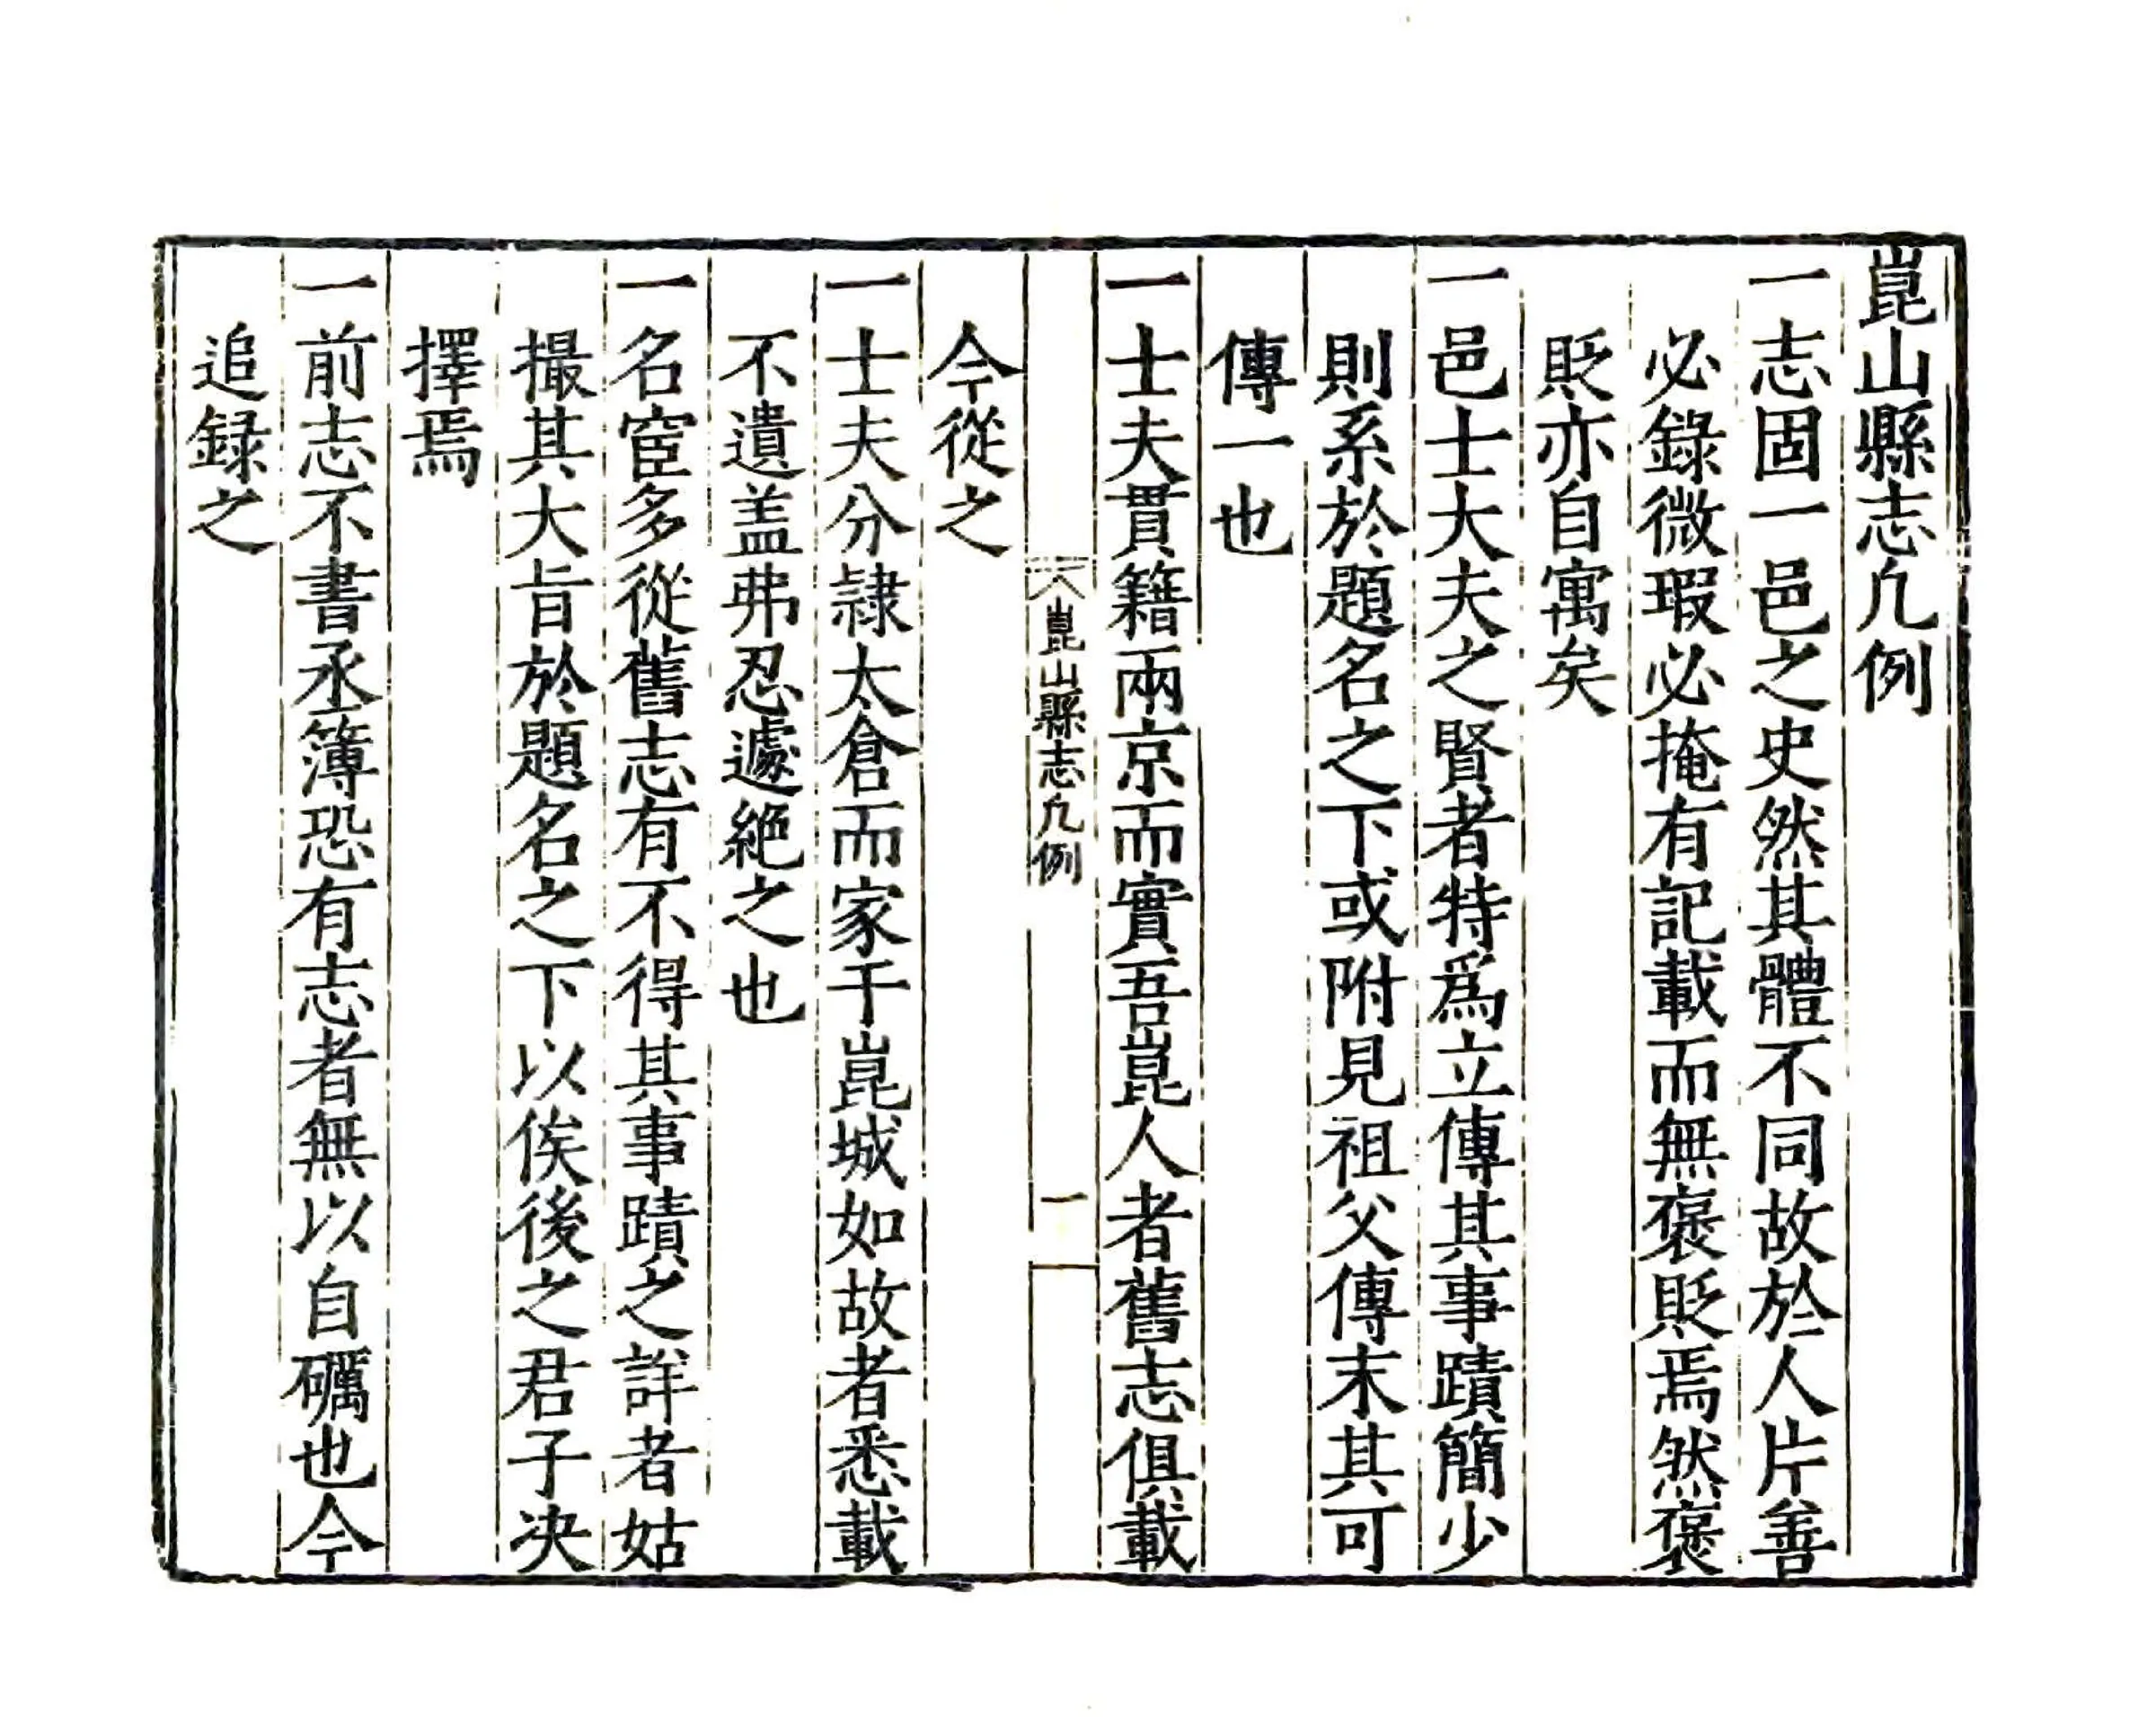 崑山縣志凡例
一志固一邑之史然其體不同故於人片善
必錄微瑕必掩有記載而無褒貶焉然褒
貶亦自寓矣
一邑士大夫之賢者特爲立傳其事蹟簡少
則系於題名之下或附見祖父傳末其可
傳一也
一士夫貫籍兩京而實吾崑人者舊志俱載
崑山縣志凡例
一
今從之
一士夫分隷太倉而家于崑城如故者悉載
不遺盖弗忍遽絕之也
一名宦多從舊志有不得其事蹟之詳者姑
撮其大旨於題名之下以俟後之君子决
擇焉
一前志不書丞簿恐有志者無以自礪也今
追録之